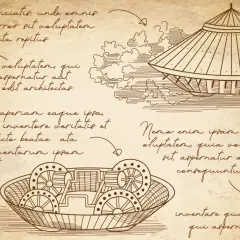 iciatis, unde omnis
error sit voluptatem
ta repitus
voluptatem, quia
aspernatur aut
odit architectas
aperiam eaque ipsa,
inventore veritatis et
cto beatae ata
inventarum ipsam
Nemo enim ipsam
voluptatem, quia volu
sit, aspernatur a
consequuntur
inventore
quia